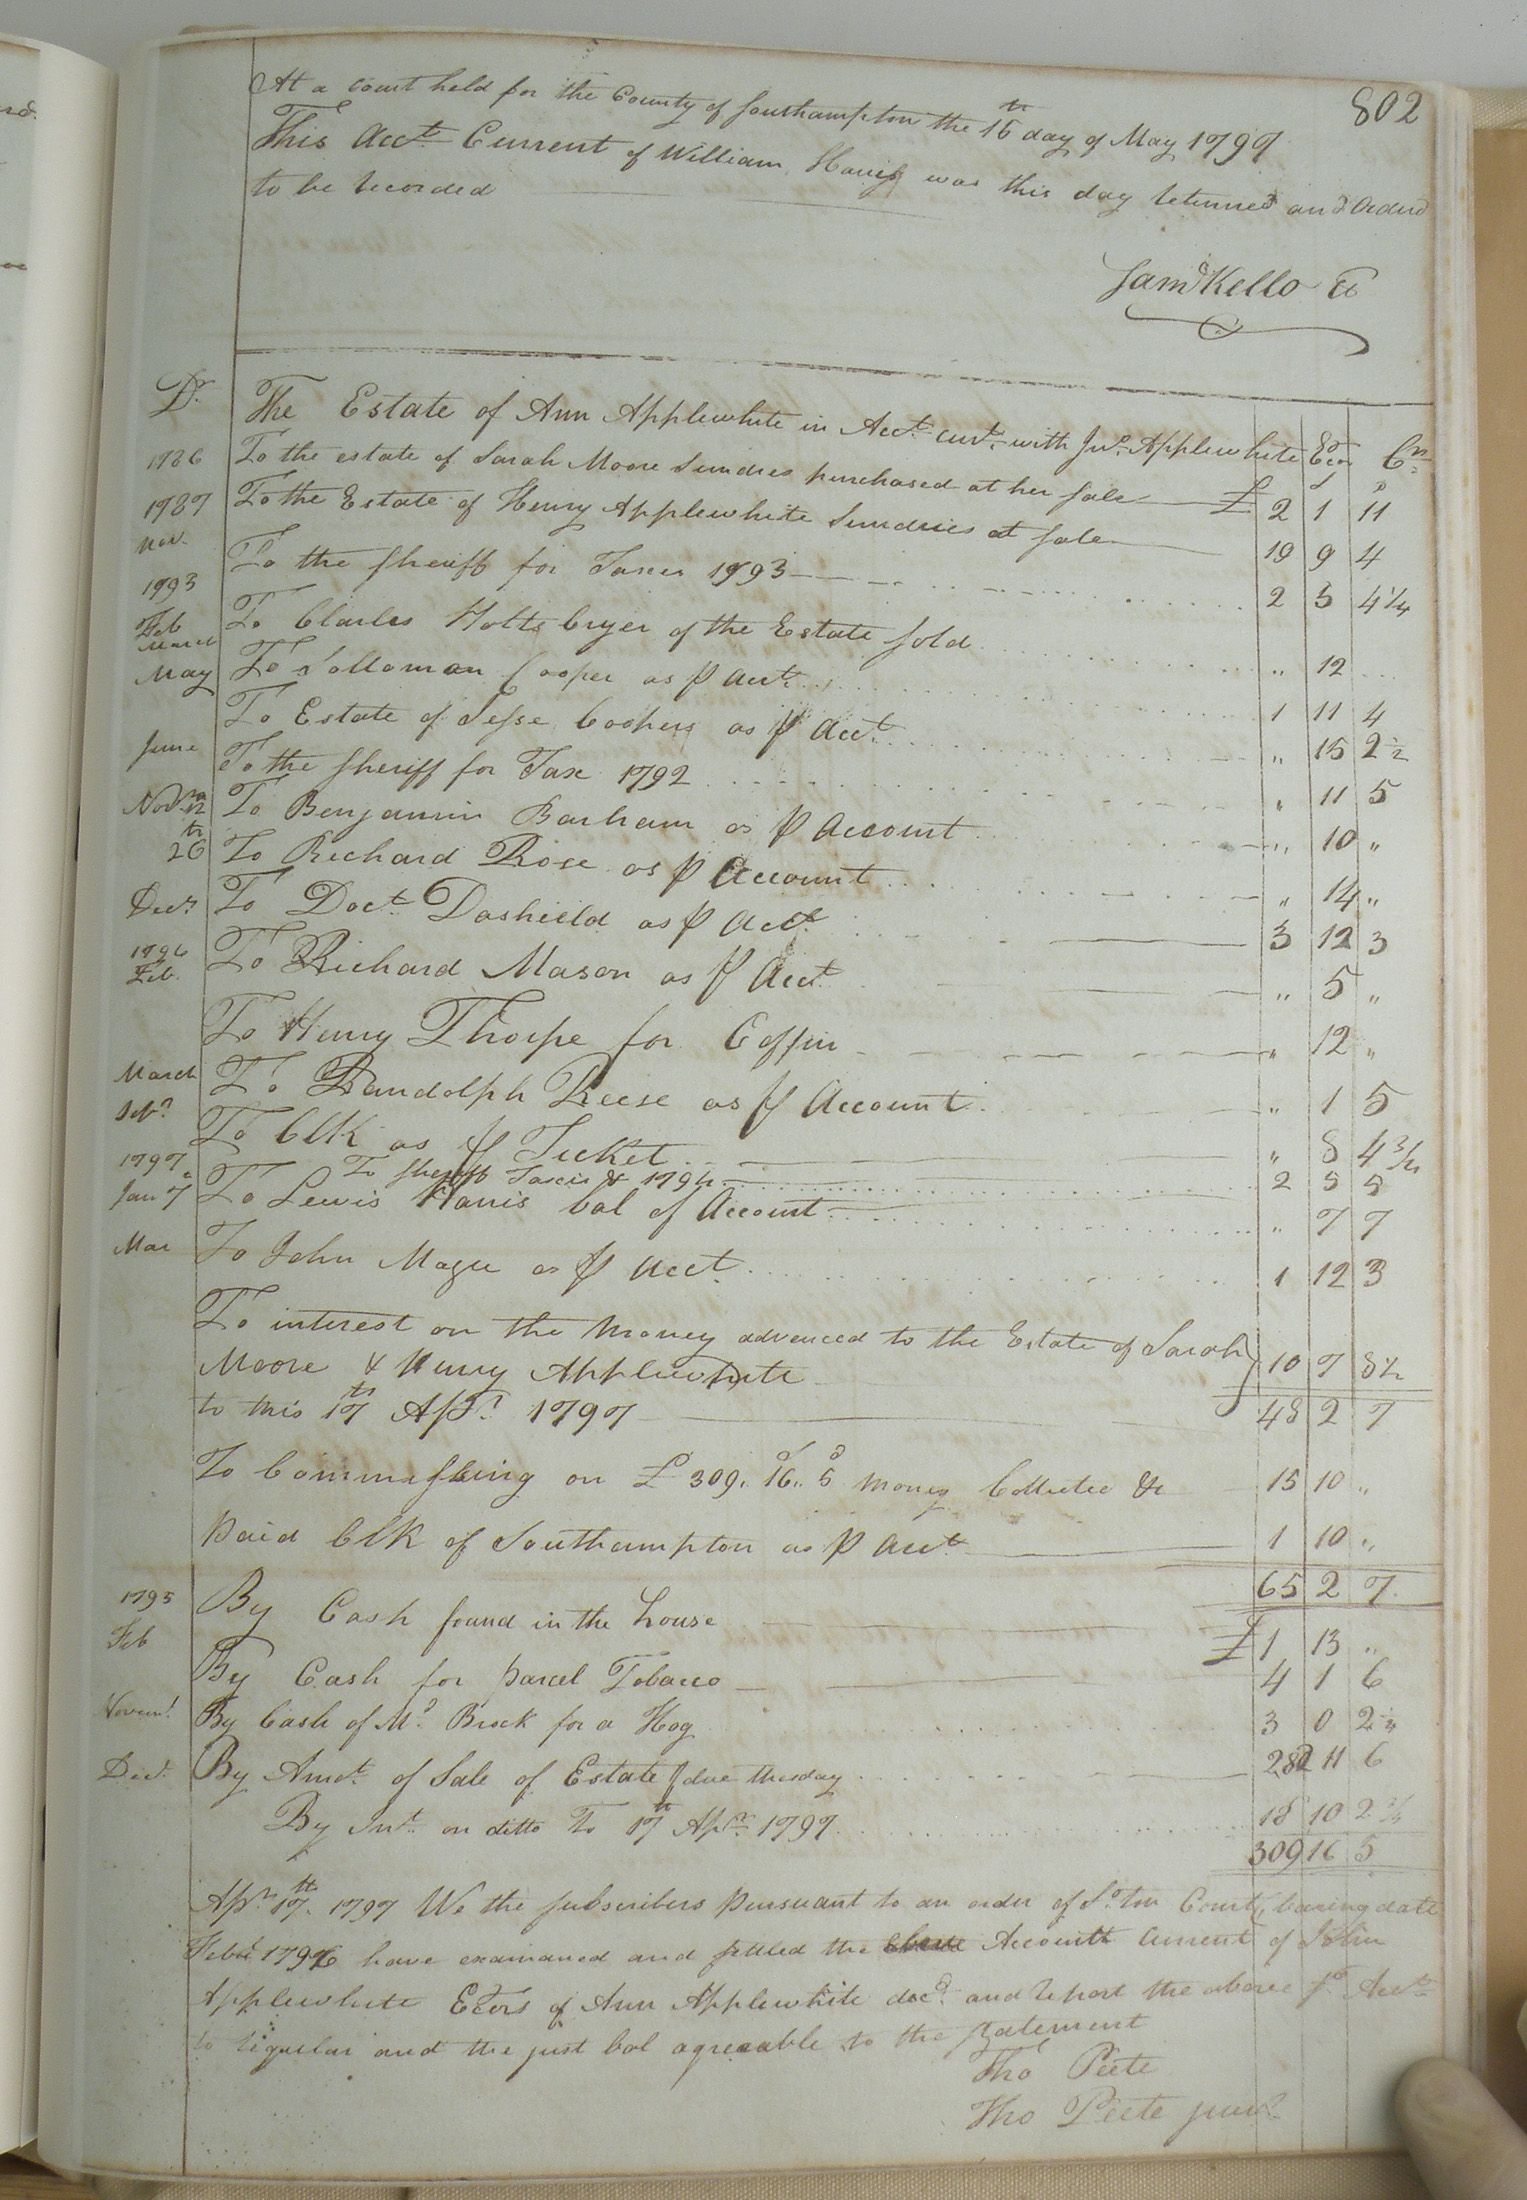 802
At a Court held for the County of Southampton the 16th day of May 1797
This Acct. Current of William Harris was this day returned and Ordered
to be recorded
Saml Kello Cl
Dr. The Estate of Ann Applewhite in Acct. Curt. with Jno. Applewhite Exor Cr.
1786 To the estate of Sarah Moore Sundries purchased at her sale £ 2 1 11
1787 Nov. To the Estate of Henry Applewhite Sundries at sale 19 9 4
1793 To the Sheriff for Taxes 1793 2 5 4 1/4
Feb To Charles Holts Cryer of the Estate sold " 12
March
May To Solloman Cooper as ⅌ Acct. 1 11 4
To Estate of Jesse Coopers as ⅌ Acct. " 15 2 1/2
June To the Sheriff for Tax 1792 " 11 5
Novm. 12 To Benjamin Barham as ⅌ Account " 10 "
26th To Richard Rose as ⅌ Account " 14 "
Decr. To Doct. Dashield as ⅌ Acct. 3 12 3
1796 Feb. To Richard Mason as ⅌ Acct. " 5 "
To Henry Thorpe for Coffin " 12 "
March To Randolph Reese as ⅌ Account " 1 5
To Clk as ⅌ Ticket " 8 4
To Sheriff Taxes 2 5 5
1797 Jany 7 To Lewis Harris bal of Account " 7 7
Mar To John Magee as ⅌ Acct. 1 12 3
To interest on the money advanced to the Estate of Sarah
Moore & Henry Applewhite 10 7 8 1/2
to this 17th Apr. 1797 48 2 7
To Commissking on £309.. 16s.. 5d money Collected &c 15 10 "
paid Clk of Southampton as ⅌ Acct 1 10 "
65 2 7
1795 Feb By Cash found in the house £ 1 13 "
By Cash for parcel Tobacco 4 1 6
Novem. By Cash of Mr. Brock for a Hog 3 0 2
Decr. By Amot. of Sale of Estate due thisday 282 11 6
By Int. on ditto To 17th Apr. 1797 18 10 2
309 16 5
Apr. 17th. 1797 We the Subscribers pursuant to an order of So.ton Court, baring date
Feby 1796 have examaned and settled the Accountt Current of John
Applewhite Exors of Ann Applewhite decd. and report the above sd. Acct.
to regular and the just bal agreeable to the Statement
Tho Peete
Tho Peete junr